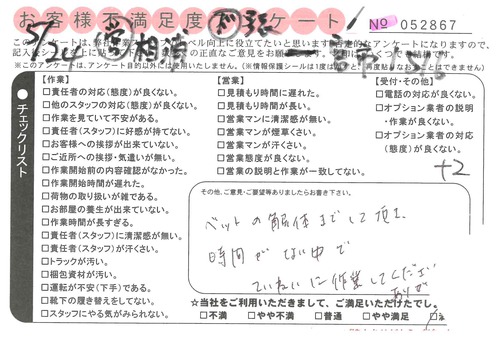 お客様不満足度 ド アンケート!
No 052867
※このアンケートは、アンケート目的以外には使用いたしません。
チェックリスト
【作業】
□責任者の対応(態度)が良くない。
□他のスタッフの対応(態度)が良くない。
□作業を見ていて不安がある。
□責任者(スタッフ)に好感が持てない。
□お客様への挨拶が出来ていない。
□ご近所への挨拶・気遣いが無い。
□作業開始前の内容確認がなかった。
□作業開始時間が遅れた。
□荷物の取り扱いが雑である。
□お部屋の養生が出来ていない。
□作業時間が長すぎる。
□責任者(スタッフ)に清潔感が無い。
□責任者(スタッフ)が汗くさい。
□トラックが汚い。
□梱包資材が汚い。
□運転が不安(下手)である。
□靴下の履き替えをしてない。
□スタッフにやる気がみられない。
【営業】
□見積もり時間に遅れた。
□見積もり時間が長い。
□営業マンに清潔感が無い。
□営業マンが煙草くさい。
□営業マンが汗くさい。
□営業態度が良くない。
□営業の説明と作業が一致してない。
【受付・その他】
□電話の対応が良くない。
□オプション業者の説明・作業が良くない。
□オプション業者の対応(態度)が良くない。
+2
その他、ご意見・ご要望等ありましたらお書き下さい。
ベットの解体までして頂き
時間がない中で
ていねいに作業してくださり
☆当社をご利用いただきまして、ご満足いただけたでしょ
□不満 □やや不満 □普通 □やや満足